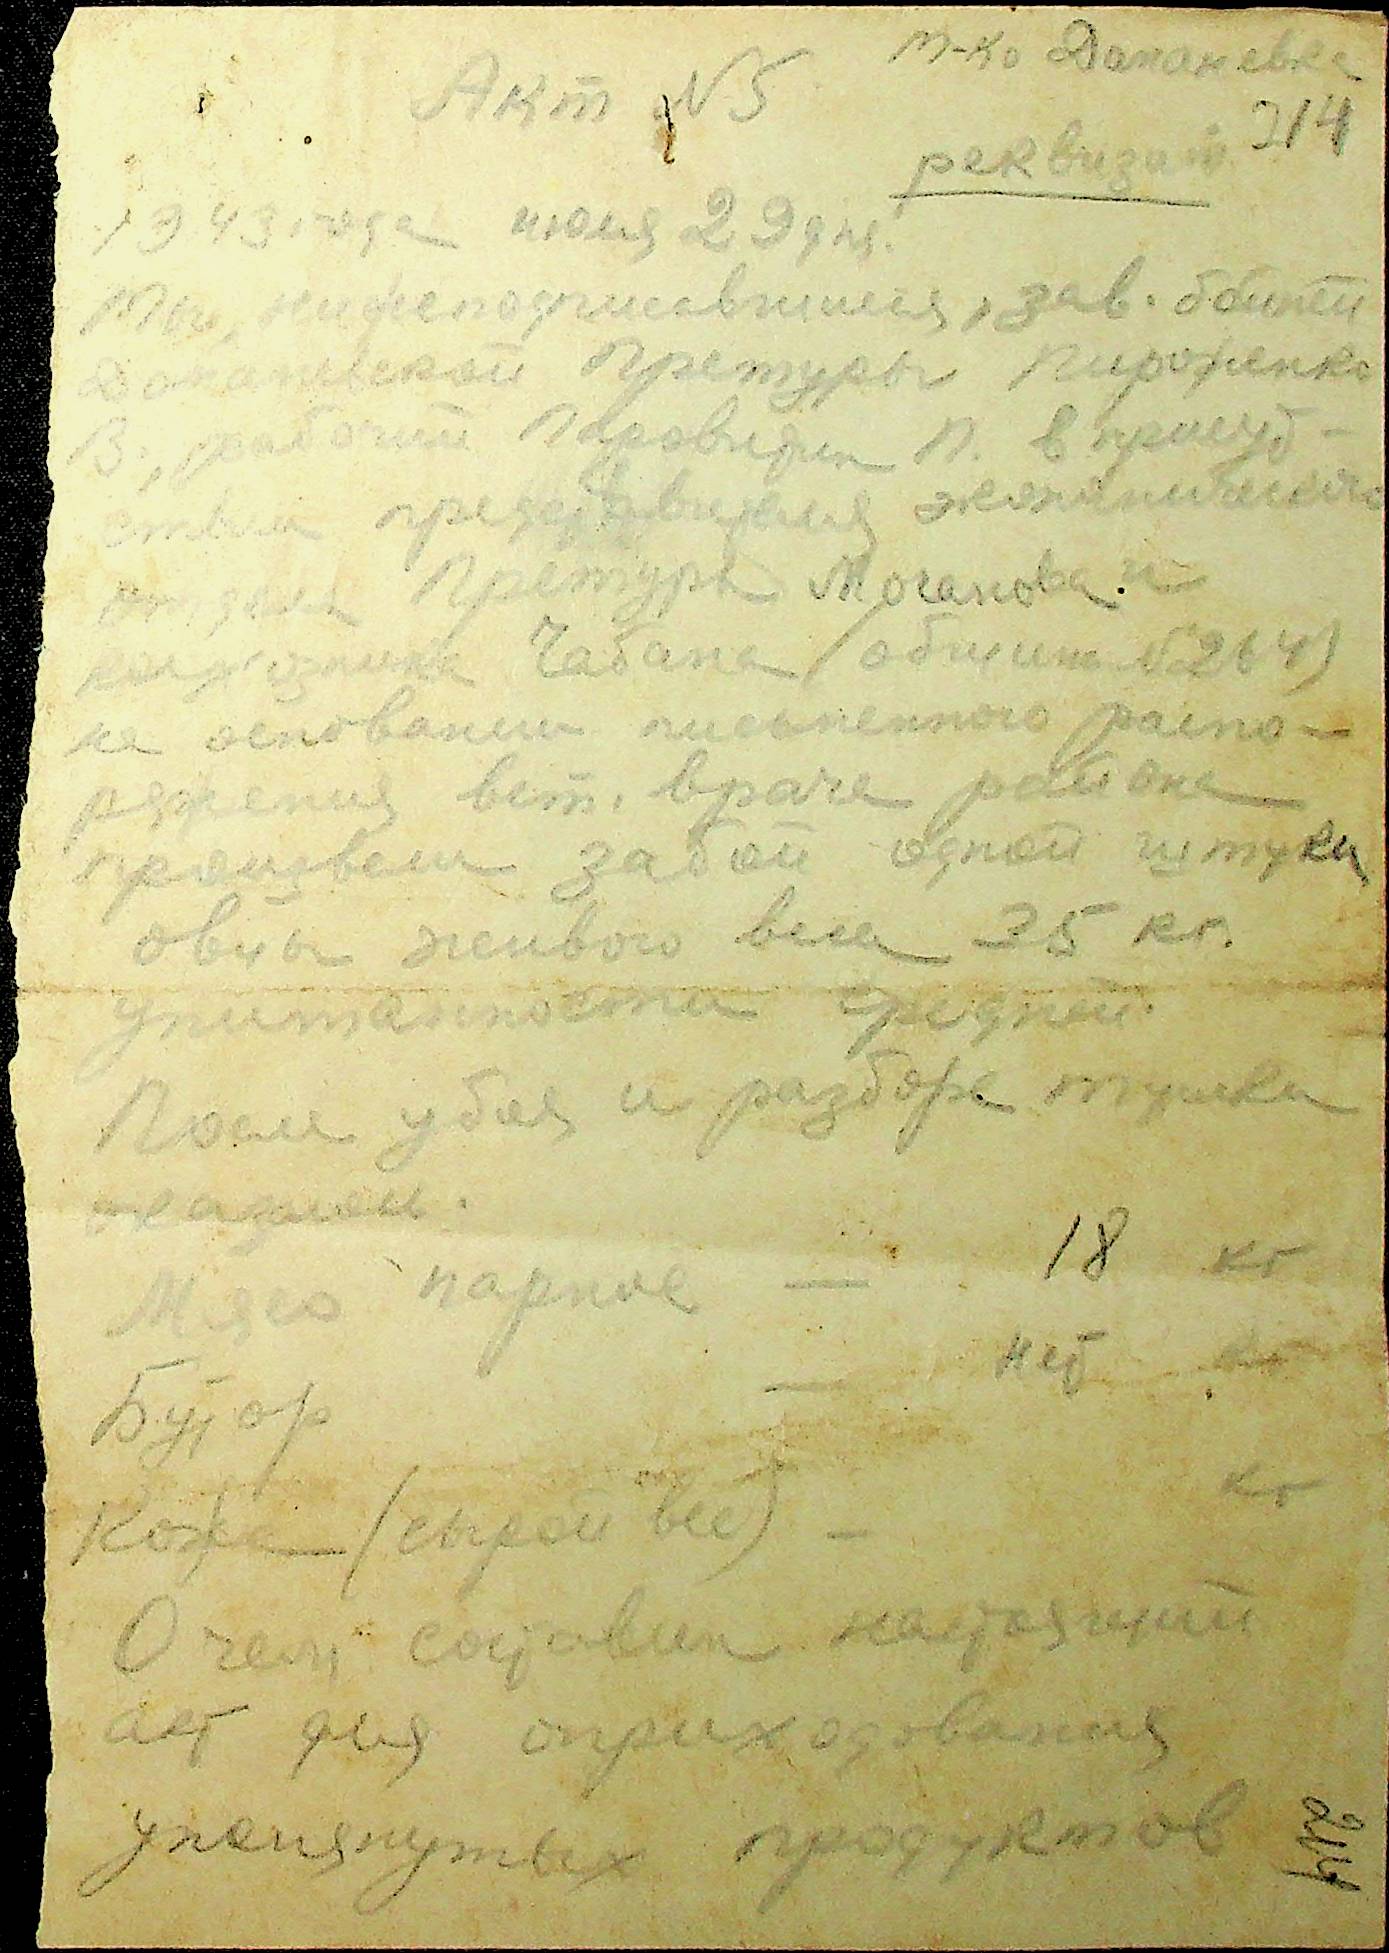 м-ко Доманевка
Акт №5
214
реквизит
1943 года июля 29 дня.
Мы, нижеподписавшиеся, зав. бойней
Доманевской Претуры Пироженко
В., рабочий П. в присут-
ствии представителя экономического
отдела Претуры Моганова и
колхозника Чабана (общины №264)
на основании письменного распо-
ряжения вет. врача района
произвели забой одной штуки
овцы живого веса 35 кг.
упитанности средней.
После убоя и разбора тушки
оказалось.
Мясо парное — 18 кг
Бутор — нет кг
Кожа (сырой вес) — кг
О чем составили настоящий
акт для оприходования
упомянутых продуктов
214